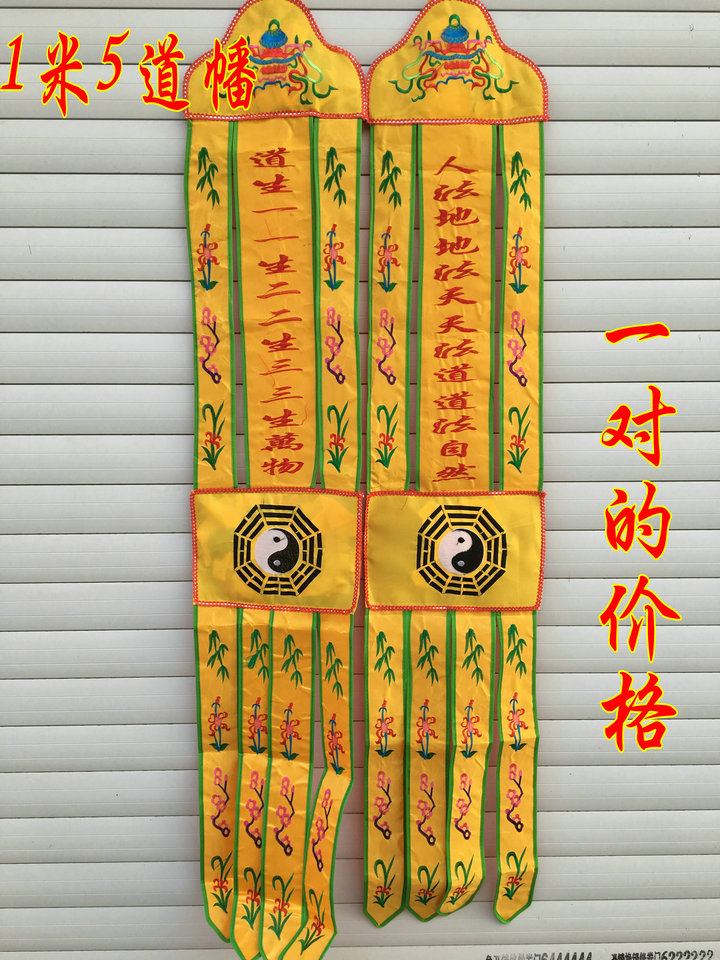 1米5道幡
道生一一生二二生三三生萬物
人法地地法天天法道道法自然
一对的价格